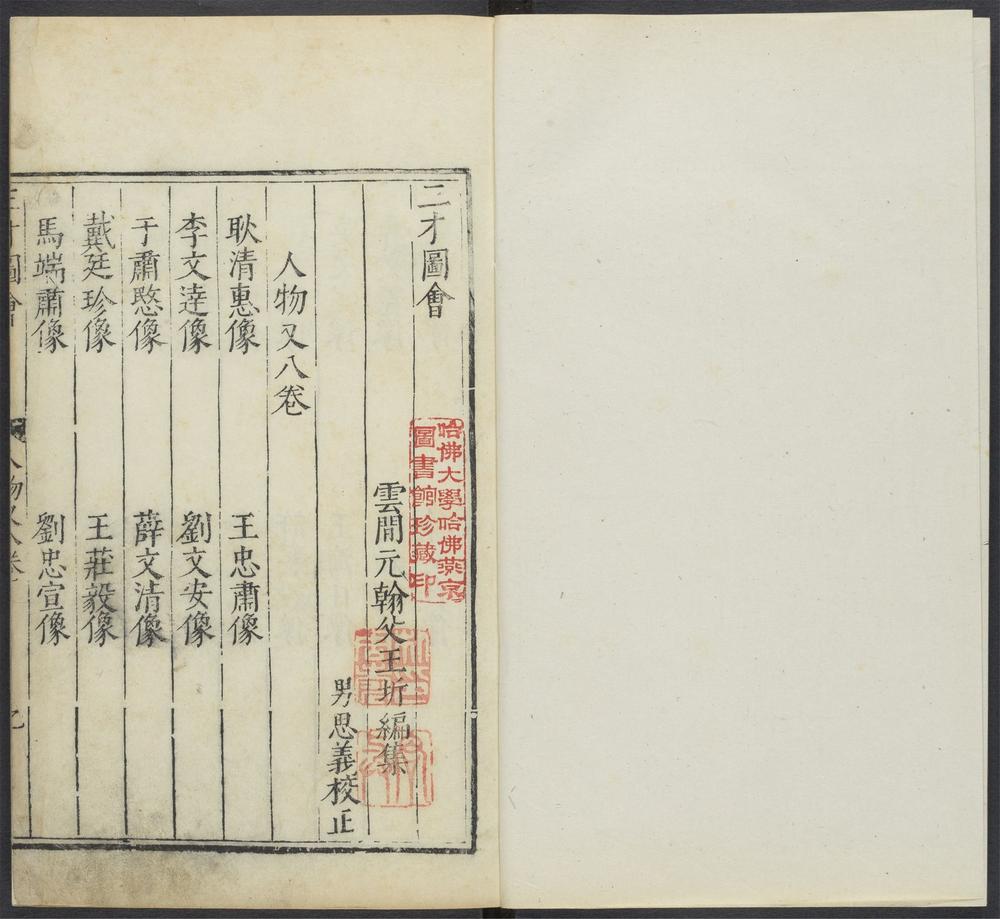 三才圖會
哈佛大學哈佛燕京
圖書館珍藏印
雲間元翰父王圻編集
男思義校正
人物又八卷
耿清惠像 王忠肅像
李文達像 劉文安像
于肅愍像 薛文清像
戴廷珍像 王莊毅像
馬端肅像 劉忠宣像
三才圖會 人物又八卷